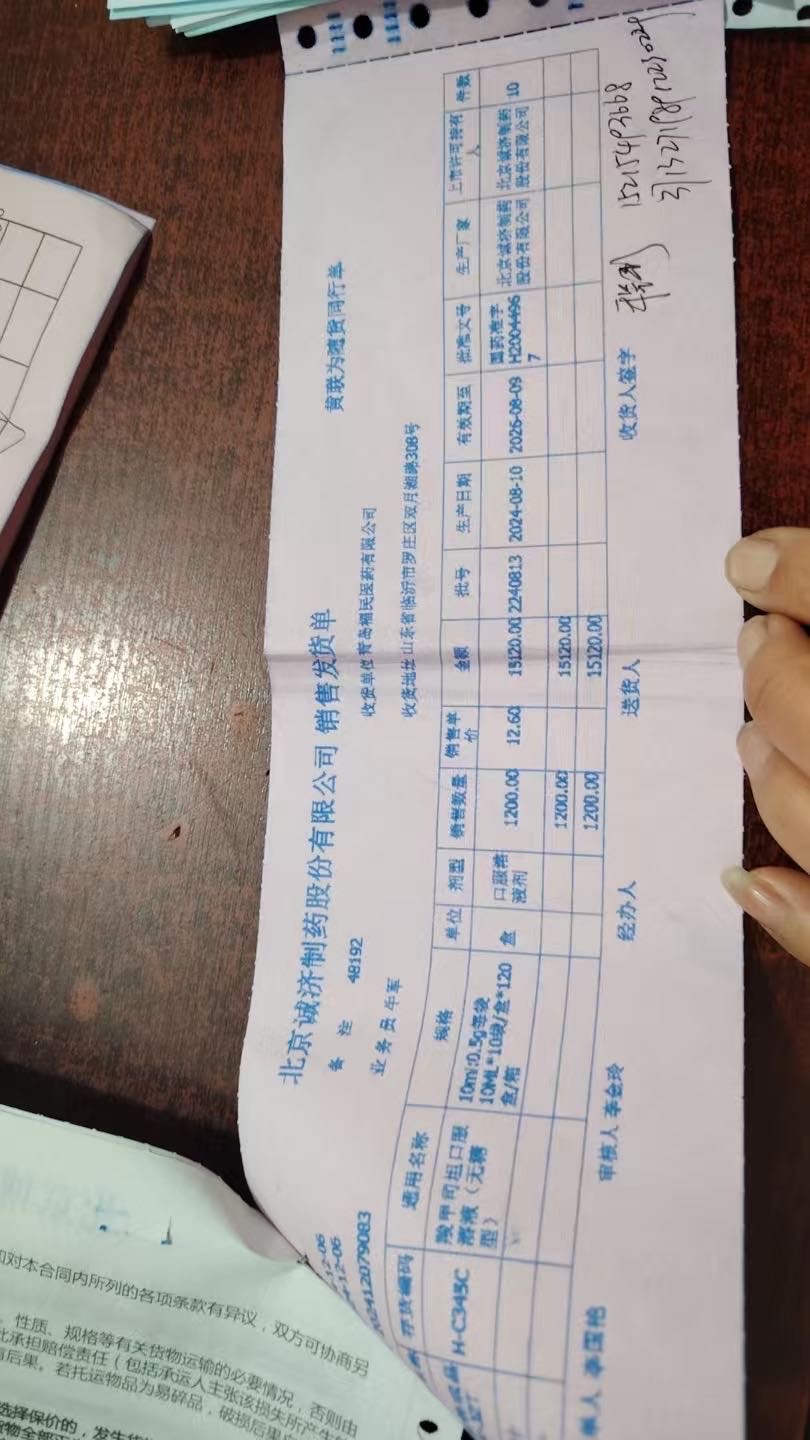 北京诚济制药股份有限公司 销售发货单
备 注 48192
黄联为随货同行单
12-06
收货单位 青岛福民医药有限公司
12-06
业务员 牛军
收货地址 山东省临沂市罗庄区双月湖路308号
202412079083
存货编码 通用名称 规格 单位 剂型 销售数量 销售单价 金额 批号 生产日期 有效期至 批准文号 生产厂家 上市许可持有人 件数
H-C345C 羧甲司坦口服溶液（无糖型） 10ml:0.5g每袋 10ML*10袋/盒*120盒/箱 盒 口服溶液剂 1200.00 12.60 15120.00 2240813 2024-08-10 2026-08-09 国药准字H20044967 北京诚济制药股份有限公司 北京诚济制药股份有限公司 10
1200.00 15120.00
1200.00 15120.00
单人 李国艳 审核人 李金玲 经办人 送货人 收货人签字
15215493668
对本合同内所列的各项条款有异议，双方可协商另
性质、规格等有关货物运输的必要情况，否则由
此承担赔偿责任（包括承运人主张该损失所产生的
后果。若托运物品为易碎品，破损后果由
选择保价的，发生货